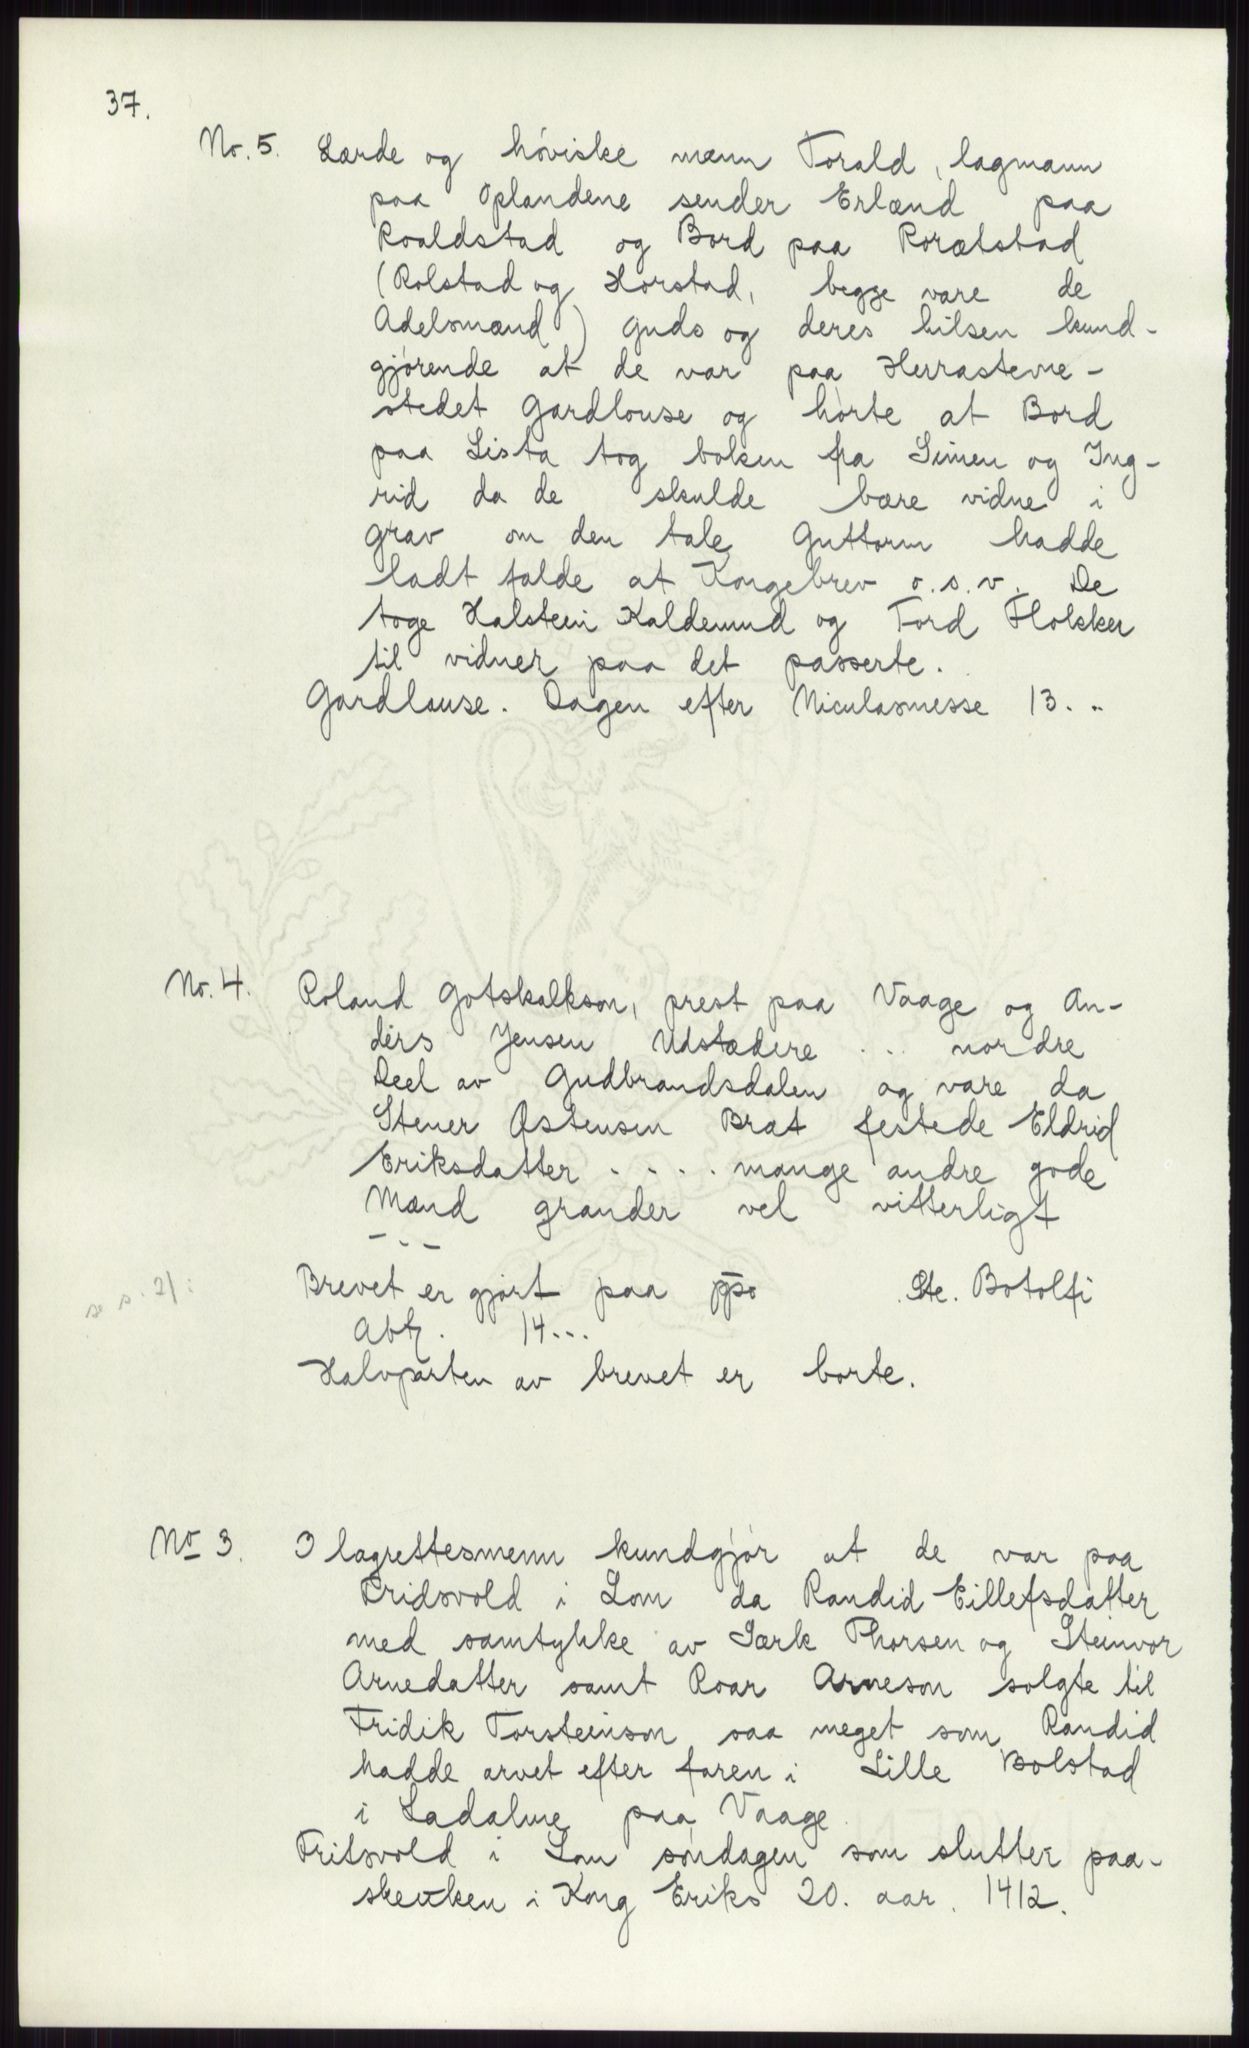 37.
No. 5. Lærde og høviske mænn Torald, lagmann
paa Oplandene sender Erlænd paa
Roaldstad og Bord paa Rorætstad
(Rolstad og Horstad, begge vare de
Adelsmænd) Guds og deres hilsen kund-
gjørende at de var paa Herrastevne-
stedet Gardlouse og hørte at Bord
paa Lista tog boken fra Simen og Ing-
rid da de skulde bære vidne i
grav om den tale Guttorm hadde
ladt falde at Kongebrev o.s.v. De
toge Halstein Kaldemud og Tord Flolsker
til vidner paa det passerte.
Gardlause. Dagen efter Niculasmesse 13...
No. 4. Roland Gotskalkson, prest paa Vaage og An-
ders Jensen Udstædere . . . nordre
Deel av Gudbrandsdalen og vare da
Stener Østensen Brat festede Eldrid
Eriksdatter . . . . mange andre gode
Mænd grander vel vitterligt
- - -
Brevet er gjørt paa Ste. Botolfi
s. 21:
14...
Halvparten av brevet er borte.
No 3. 3 lagrettesmenn kundgjør at de var paa
Fridsvold i Lom da Randid Eillefsdatter
med samtykke av Særk Thorsen og Steinvor
Arnedatter samt Roar Arneson solgte til
Fridik Torsteinson saa meget som Randid
hadde arvet efter faren i Lille Bolstad
i Ladalme paa Vaage
Fritsvold i Lom søndagen som slutter paa-
skeuken i Kong Eriks 20. aar. 1412.